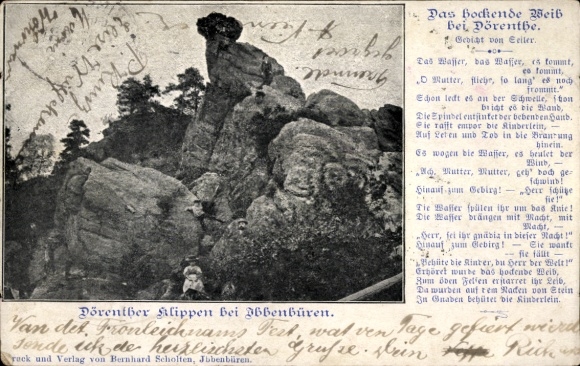 Das hockende Weib
bei Dörenthe.
Gedicht von Seiler.
Das Wasser, das Wasser, es kommt,
es kommt,
„O Mutter, flieh', so lang' es noch
frommt."
Schon leckt es an der Schwelle, schon
bricht es die Wand,
Die Spindel entsinket der bebenden Hand.
Sie rafft empor die Kinderlein, —
Auf Leben und Tod in die Brandung
hinein.
Es wogen die Wasser, es heulet der
Wind, —
„Ach, Mutter, Mutter, geh' doch ge-
schwind!
Hinauf zum Gebirg! — „Herr schütze
sie!"
Die Wasser spülen ihr um das Knie!
Die Wasser drängen mit Macht, mit
Macht, —
„Herr, sei ihr gnädig in dieser Nacht!"
Hinauf zum Gebirg! — Sie wankt
— sie fällt —
„Behüte die Kinder, du Herr der Welt!"
Erhöret wurde das hockende Weib,
Zum öden Felsen erstarret ihr Leib,
Da wurden auf dem Nacken von Stein
In Gnaden behütet die Kinderlein.
Dörenther Klippen bei Ibbenbüren.
Van det Fronleichnams Fest, wat ven Tage gefiert
sende ick de herzlichsten Grüße. Dein
ruck und Verlag von Bernhard Scholten, Ibbenbüren.